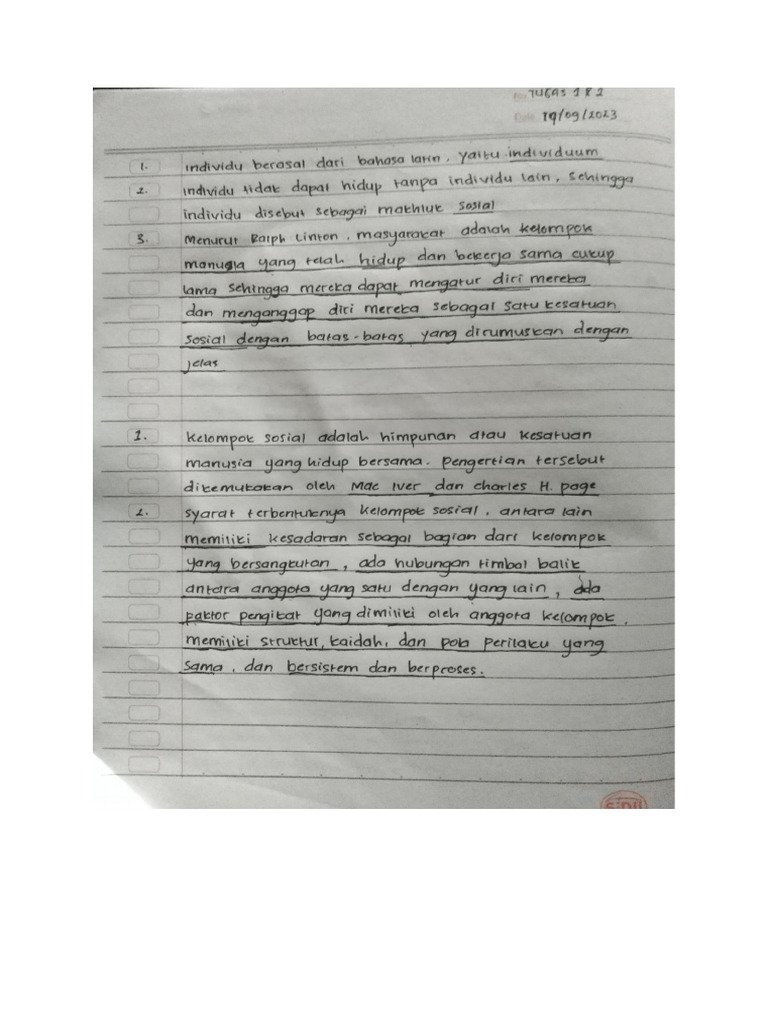 No. TUGAS 1 & 2
Date 19/09/2023
1. individu berasal dari bahasa latin, yaitu individuum
2. individu tidak dapat hidup tanpa individu lain, sehingga
individu disebut sebagai makhluk sosial
3. Menurut Ralph Linton, masyarakat adalah kelompok
manusia yang telah hidup dan bekerja sama cukup
lama sehingga mereka dapat mengatur diri mereka
dan menganggap diri mereka sebagai satu kesatuan
sosial dengan batas-batas yang dirumuskan dengan
jelas
1. kelompok sosial adalah himpunan atau kesatuan
manusia yang hidup bersama. pengertian tersebut
dikemukakan oleh Mac Iver dan charles H. page
2. syarat terbentuknya kelompok sosial, antara lain
memiliki kesadaran sebagai bagian dari kelompok
yang bersangkutan, ada hubungan timbal balik
antara anggota yang satu dengan yang lain, ada
faktor pengikat yang dimiliki oleh anggota kelompok,
memiliki struktur, kaidah, dan pola perilaku yang
sama, dan bersistem dan berproses.
SiDU